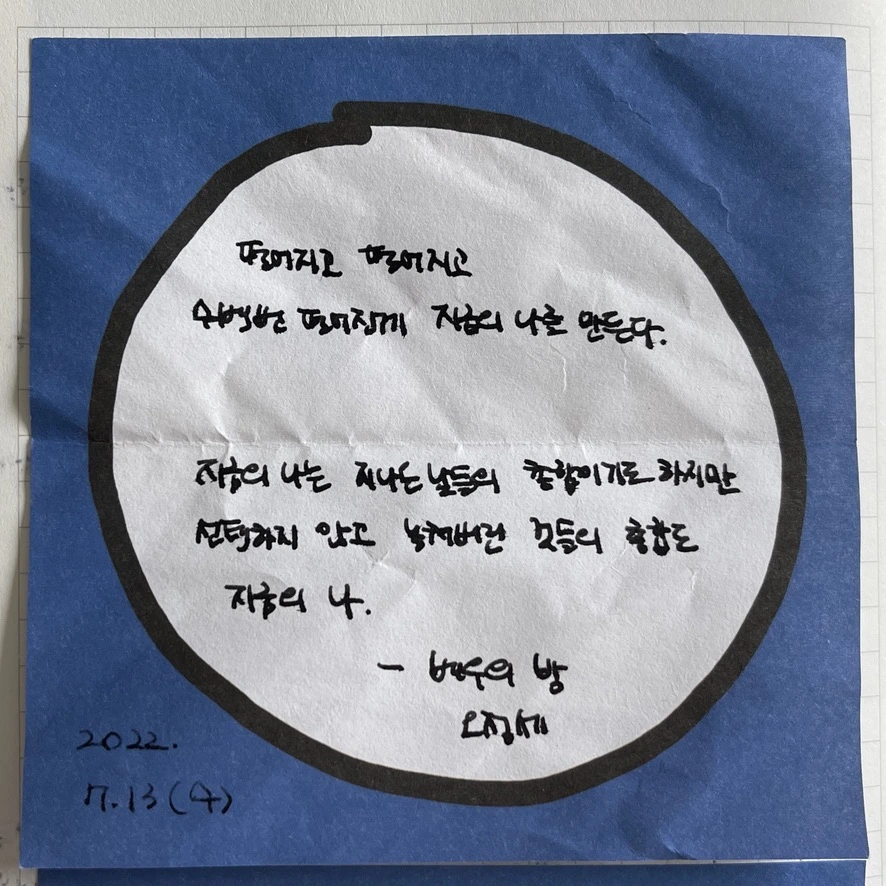 떨어지고 떨어지고
수백번 떨어진게 지금의 나를 만든다.
지금의 나는 지나온 날들의 총합이기도 하지만
선택하지 않고 놓쳐버린 것들의 총합도
지금의 나.
- 배우의 방
오정세
2022.
7.13(수)